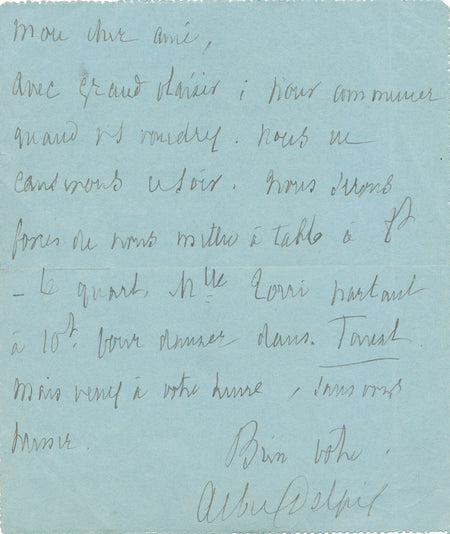 Mon cher ami,
avec grand plaisir : pour commencer
quand vs voudrez. Nous en
causerons ce soir. Nous serons
forcés de nous mettre à table à 8h
- le quart, Mlle Zorri partant
à 10h. pour danser dans Tarest
Mais venez à votre heure, sans vous
presser.
Bien votre.
Albert Delpit